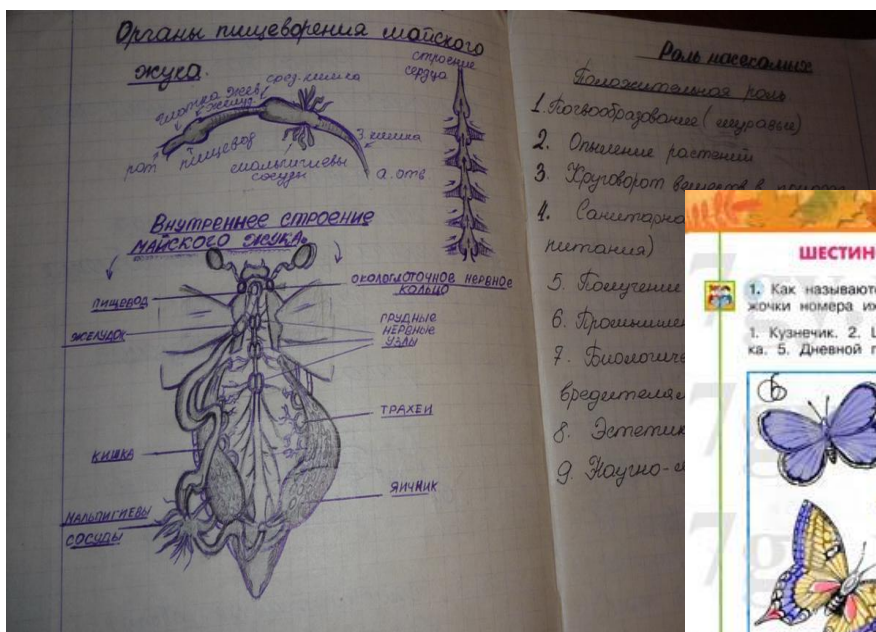 Органы пищеворения майского
жука.
глотка
сред. кишка
рот
пищевод
мальпигиевы
сосуды
з. кишка
а. отв
строение
сердца
Внутреннее строение
майского жука.
пищевод
желудок
кишка
мальпигиевы
сосуды
окологлоточное нервное
кольцо
грудные
нервные
узлы
трахеи
яичник
Роль насекомых
Положительная роль
1. Почвообразование (муравьи)
2. Опыление растений
3. Круговорот веществ в природе
4. Санитарна
питания)
5. Получение
6. Промышлен
7. Биологиче
вредителям
8. Эстетик
9. Научно-
ШЕСТИН
1. Как называютс
жочки номера их
1. Кузнечик. 2.
ка. 5. Дневной п
6